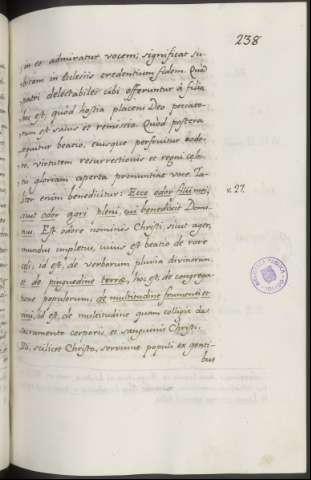 238
in et admiratur vocem; significat su-
bitam in Ecclesiis credentium fidem. Quod
patri delectabiles cibi offeruntur à filio
hoc est, quòd hostia placens Deo peccato-
rum et salus et remissio. Quòd postera
sequitur beatio, eiusque perfruitur odo-
re, virtutem resurrectionis et regni cele-
tis gloriam aperta pronuntiat voce. Ta-
liter enim benedicitur: Ecce odor filii mei,
sicut odor agri pleni, qui benedixit Domi-
nus. Est odore nominis Christi, sicut ager,
mundus impletus, cuius est beatio de rore
celi, id est, de verborum pluvia divinorum,
et de pinguedine terræ, hoc est, de congrega-
tione populorum, de multitudine frumenti et
vini, id est, de multitudine quam colligit de
sacramento corporis, et sanguinis Christi.
Ei, scilicet Christo, serviunt populi ex genti-
bus
v. 27.